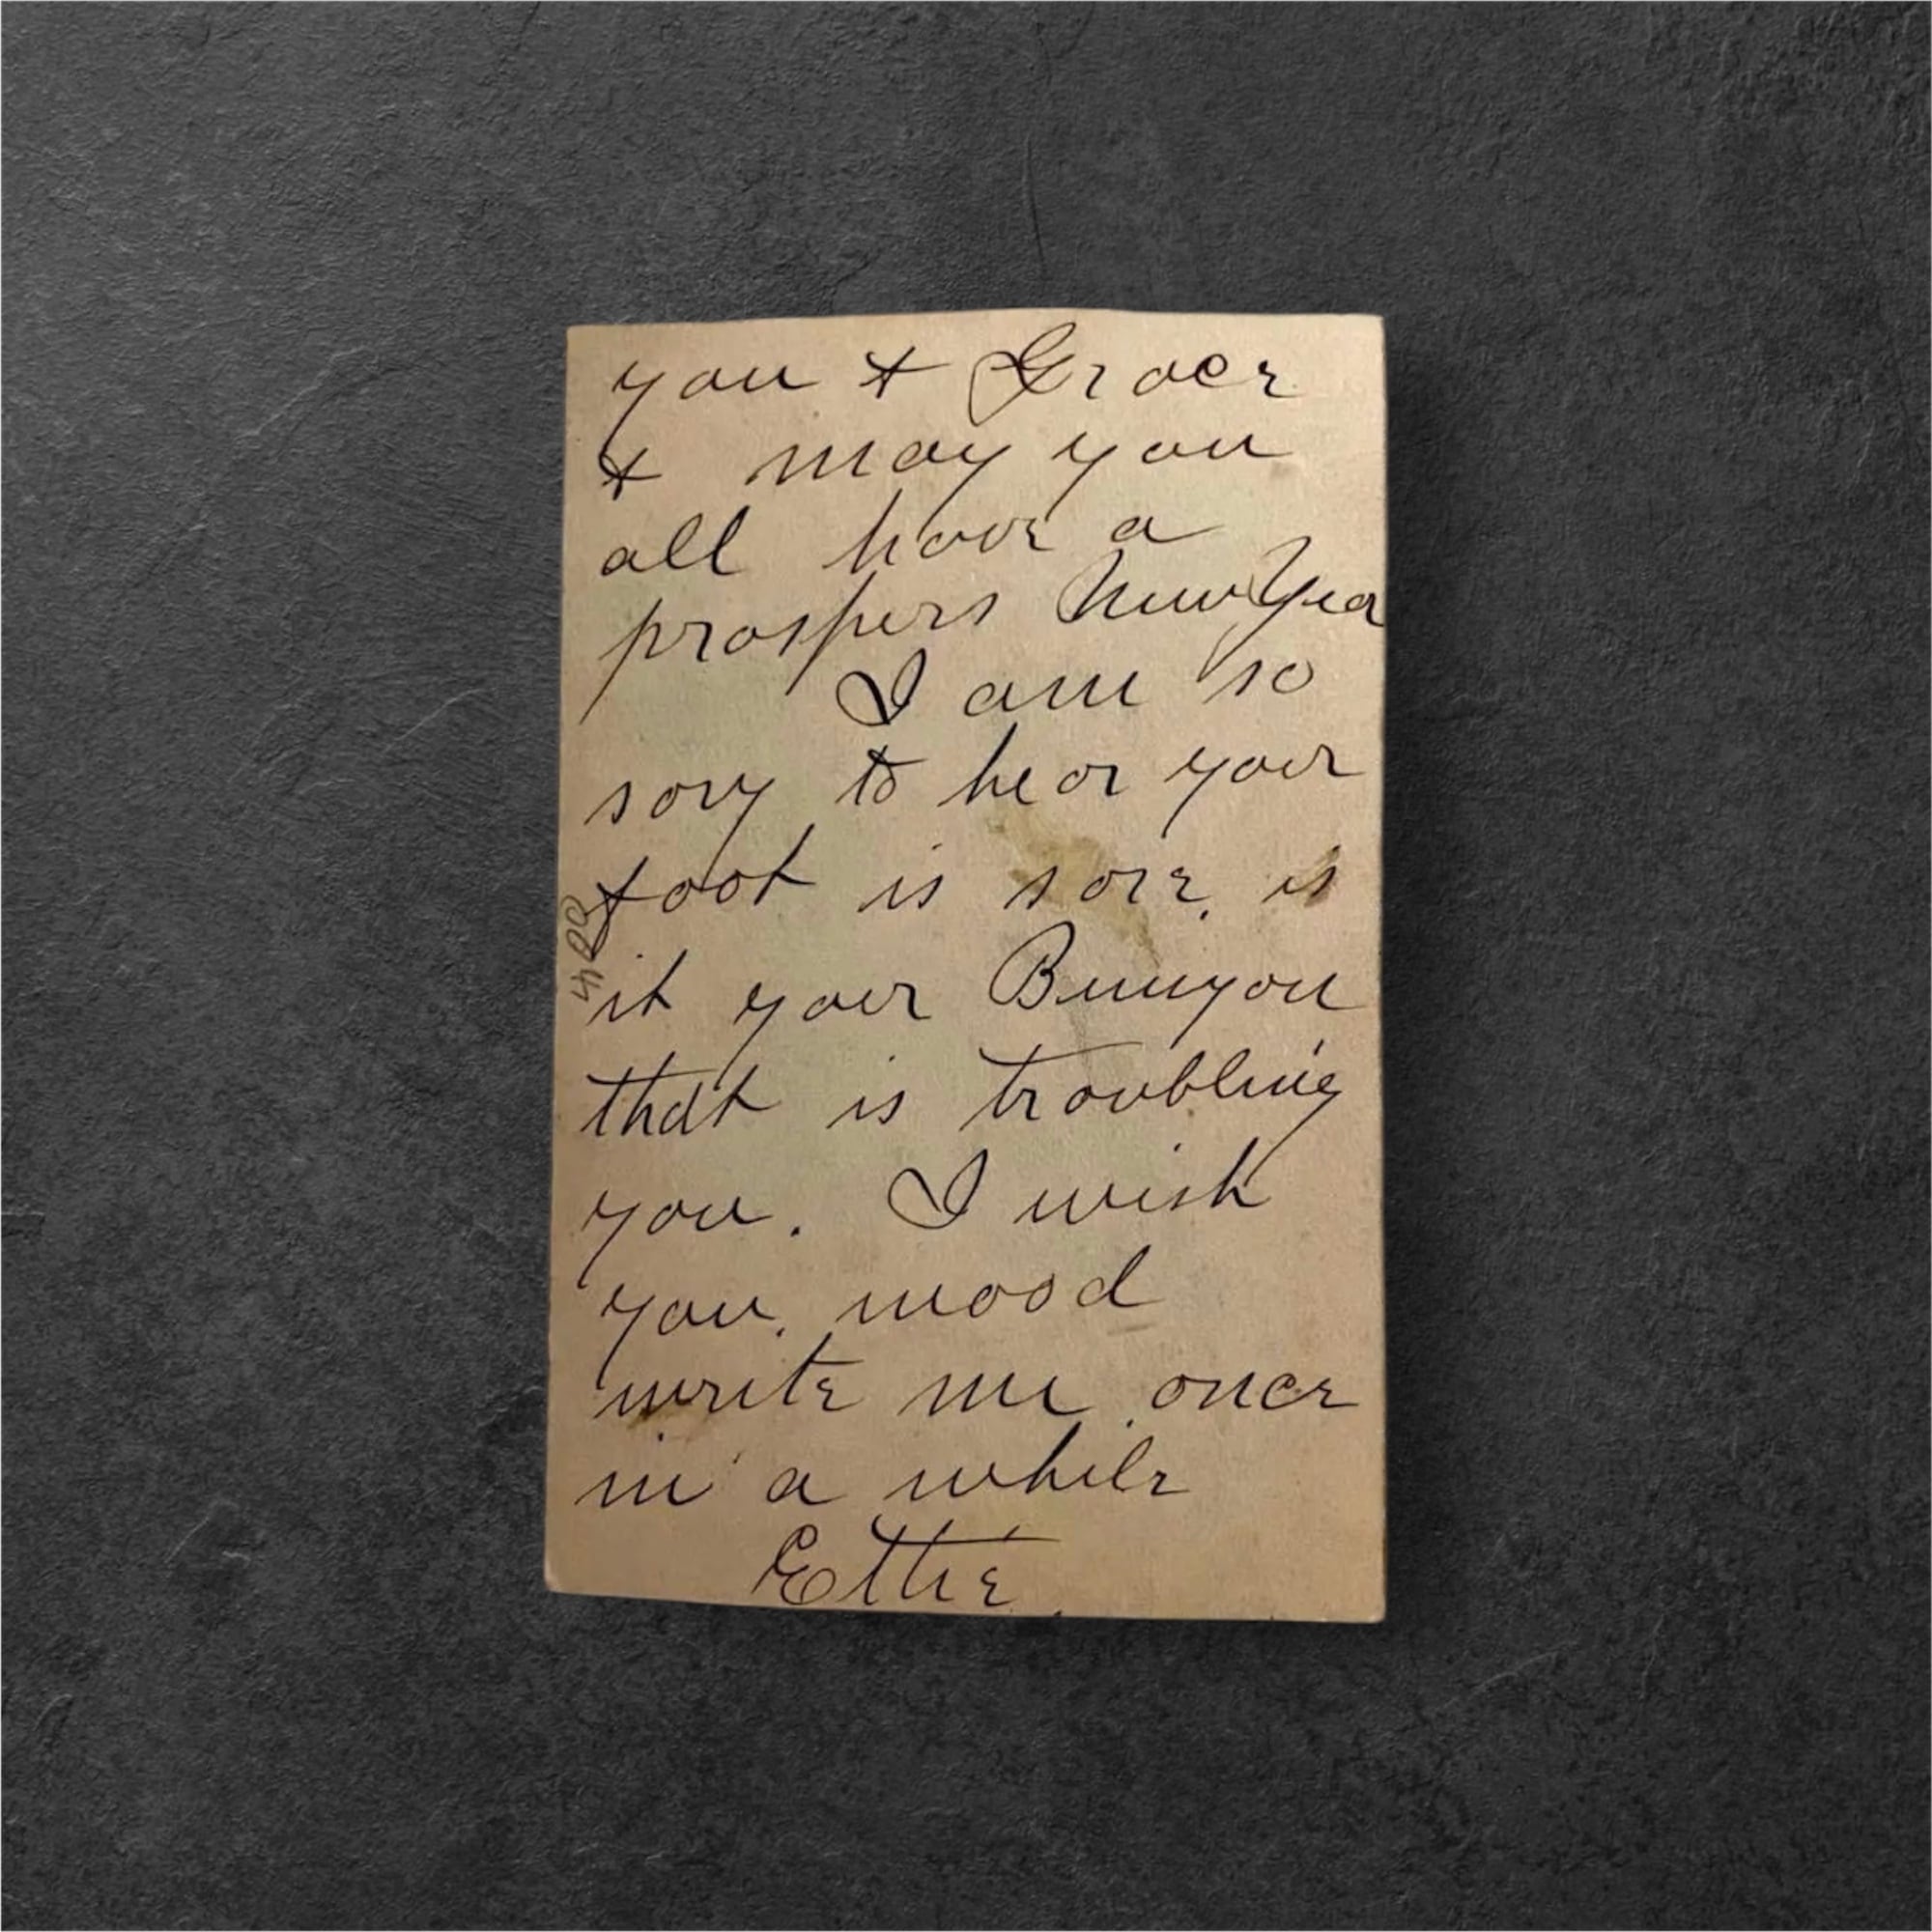 you & Grace
& may you
all have a
prospers New Year
I am so
sory to hear your
foot is sore. is
it your Bunyon
that is troubling
you. I wish
you. mood
write me once
in a while
Ettie.